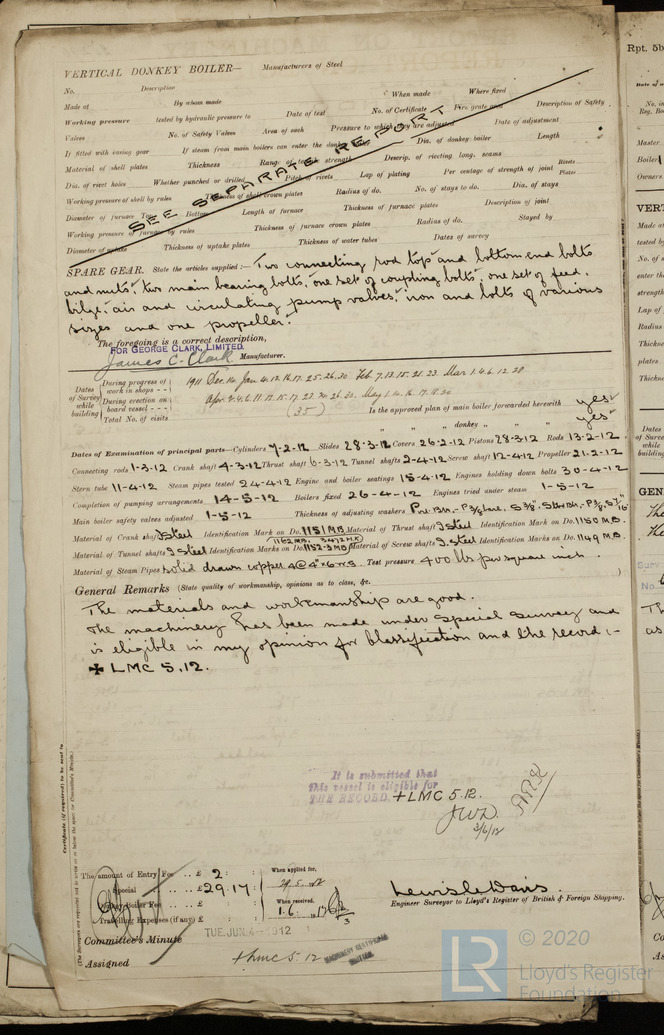 VERTICAL DONKEY BOILER— Manufacturers of Steel
No. Description When made Where fixed
Made at By whom made
Working pressure tested by hydraulic pressure to Date of test No. of Certificate Fire grate area Description of Safety
Valves No. of Safety Valves Area of each Pressure to which they are adjusted Date of adjustment
If fitted with easing gear If steam from main boilers can enter the donkey Dia. of donkey boiler Length
Material of shell plates Thickness Range of tensile strength Descrip. of riveting long. seams
Dia. of rivet holes Whether punched or drilled Pitch of rivets Lap of plating Per centage of strength of joint Rivets Plates
Working pressure of shell by rules Thickness of shell crown plates Radius of do. No. of stays to do. Dia. of stays
Diameter of furnace Top Bottom Length of furnace Thickness of furnace plates Description of joint
Working pressure of furnace by rules Thickness of furnace crown plates Radius of do. Stayed by
Diameter of uptake Thickness of uptake plates Thickness of water tubes Dates of survey
SEE SEPARATE REPORT
SPARE GEAR. State the articles supplied:— Two connecting rod top and bottom end bolts
and nuts, two main bearing bolts, one set of coupling bolts, one set of feed,
bilge, air and circulating pump valves, iron and bolts of various
sizes and one propeller.
The foregoing is a correct description,
FOR GEORGE CLARK, LIMITED.
James C. Clark Manufacturer.
Dates of Survey while building
During progress of work in shops - - 1911 Dec. 14 Jan. 4. 12. 16. 17. 25. 26. 30 Feb. 7. 13. 15. 21. 23 Mar 1. 4. 6. 12. 28
During erection on board vessel - - -
Total No. of visits (35) Is the approved plan of main boiler forwarded herewith yes
" " " donkey " " " yes
Dates of Examination of principal parts—Cylinders 7-2-12 Slides 28-3-12 Covers 26-2-12 Pistons 28-3-12 Rods 13-2-12
Connecting rods 1-3-12 Crank shaft 4-3-12 Thrust shaft 6-3-12 Tunnel shafts 2-4-12 Screw shaft 12-4-12 Propeller 21-2-12
Stern tube 11-4-12 Steam pipes tested 24-4-12 Engine and boiler seatings 15-4-12 Engines holding down bolts 30-4-12
Completion of pumping arrangements 14-5-12 Boilers fixed 26-4-12 Engines tried under steam 1-5-12
Main boiler safety valves adjusted 1-5-12 Thickness of adjusting washers
Material of Crank shaft I Steel Identification Mark on Do. 1151 MB Material of Thrust shaft I Steel Identification Mark on Do. 1150 M.B.
Material of Tunnel shafts I Steel Identification Marks on Do. 1152-3 MB Material of Screw shafts I Steel Identification Marks on Do. 1149 M.B.
Material of Steam Pipes solid drawn copper 4 @ 4" x 6 W.G. Test pressure 400 lbs per square inch
General Remarks (State quality of workmanship, opinions as to class, &c.
The materials and workmanship are good.
The machinery has been made under special survey and
is eligible in my opinion for classification and the record:-
✠ LMC 5.12.
It is submitted that
this vessel is eligible for
THE RECORD. + LMC 5.12.
3/6/12
Certificate (if required) to be sent to
The amount of Entry Fee .. £ 2 : : When applied for,
Special .. .. £ 29.17 : 29.5.12
Donkey Boiler Fee .. £ : : When received,
Travelling Expenses (if any) £ : : 1.6.12
Lewis C. Davis.
Engineer Surveyor to Lloyd's Register of British & Foreign Shipping.
Committee's Minute TUE. JUN. 4 - 1912
Assigned + LMC 5.12
MACHINERY CERTIFICATE WRITTEN.
LR
© 2020
Lloyd's Register
Foundation
Rpt. 5b
Master
Boiler
Owners
VERT
Made at
tested by
No. of s
enter the
strength
Lap of
Radius
Thickn
plates
Thickne
Dates
of Survey
while
building
GEN
The
The
Surv
No.
as
Co
As